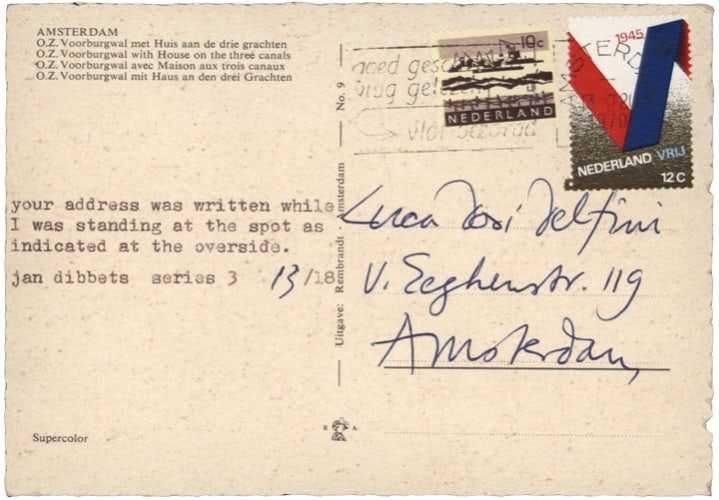 AMSTERDAM
O.Z. Voorburgwal met Huis aan de drie grachten
O.Z. Voorburgwal with House on the three canals
O.Z. Voorburgwal avec Maison aux trois canaux
O.Z. Voorburgwal mit Haus an den drei Grachten
your address was written while
I was standing at the spot as
indicated at the overside.
jan dibbets series 3 13/18
Supercolor
Uitgave: Rembrandt - Amsterdam
No. 9
goed
vlug
vlot bezorgd
AMSTERD
1970
18c
NEDERLAND
1945
NEDERLAND VRIJ
12 C
Luca Dosi Delfini
V. Eeghenstr. 119
Amsterdam,
R A